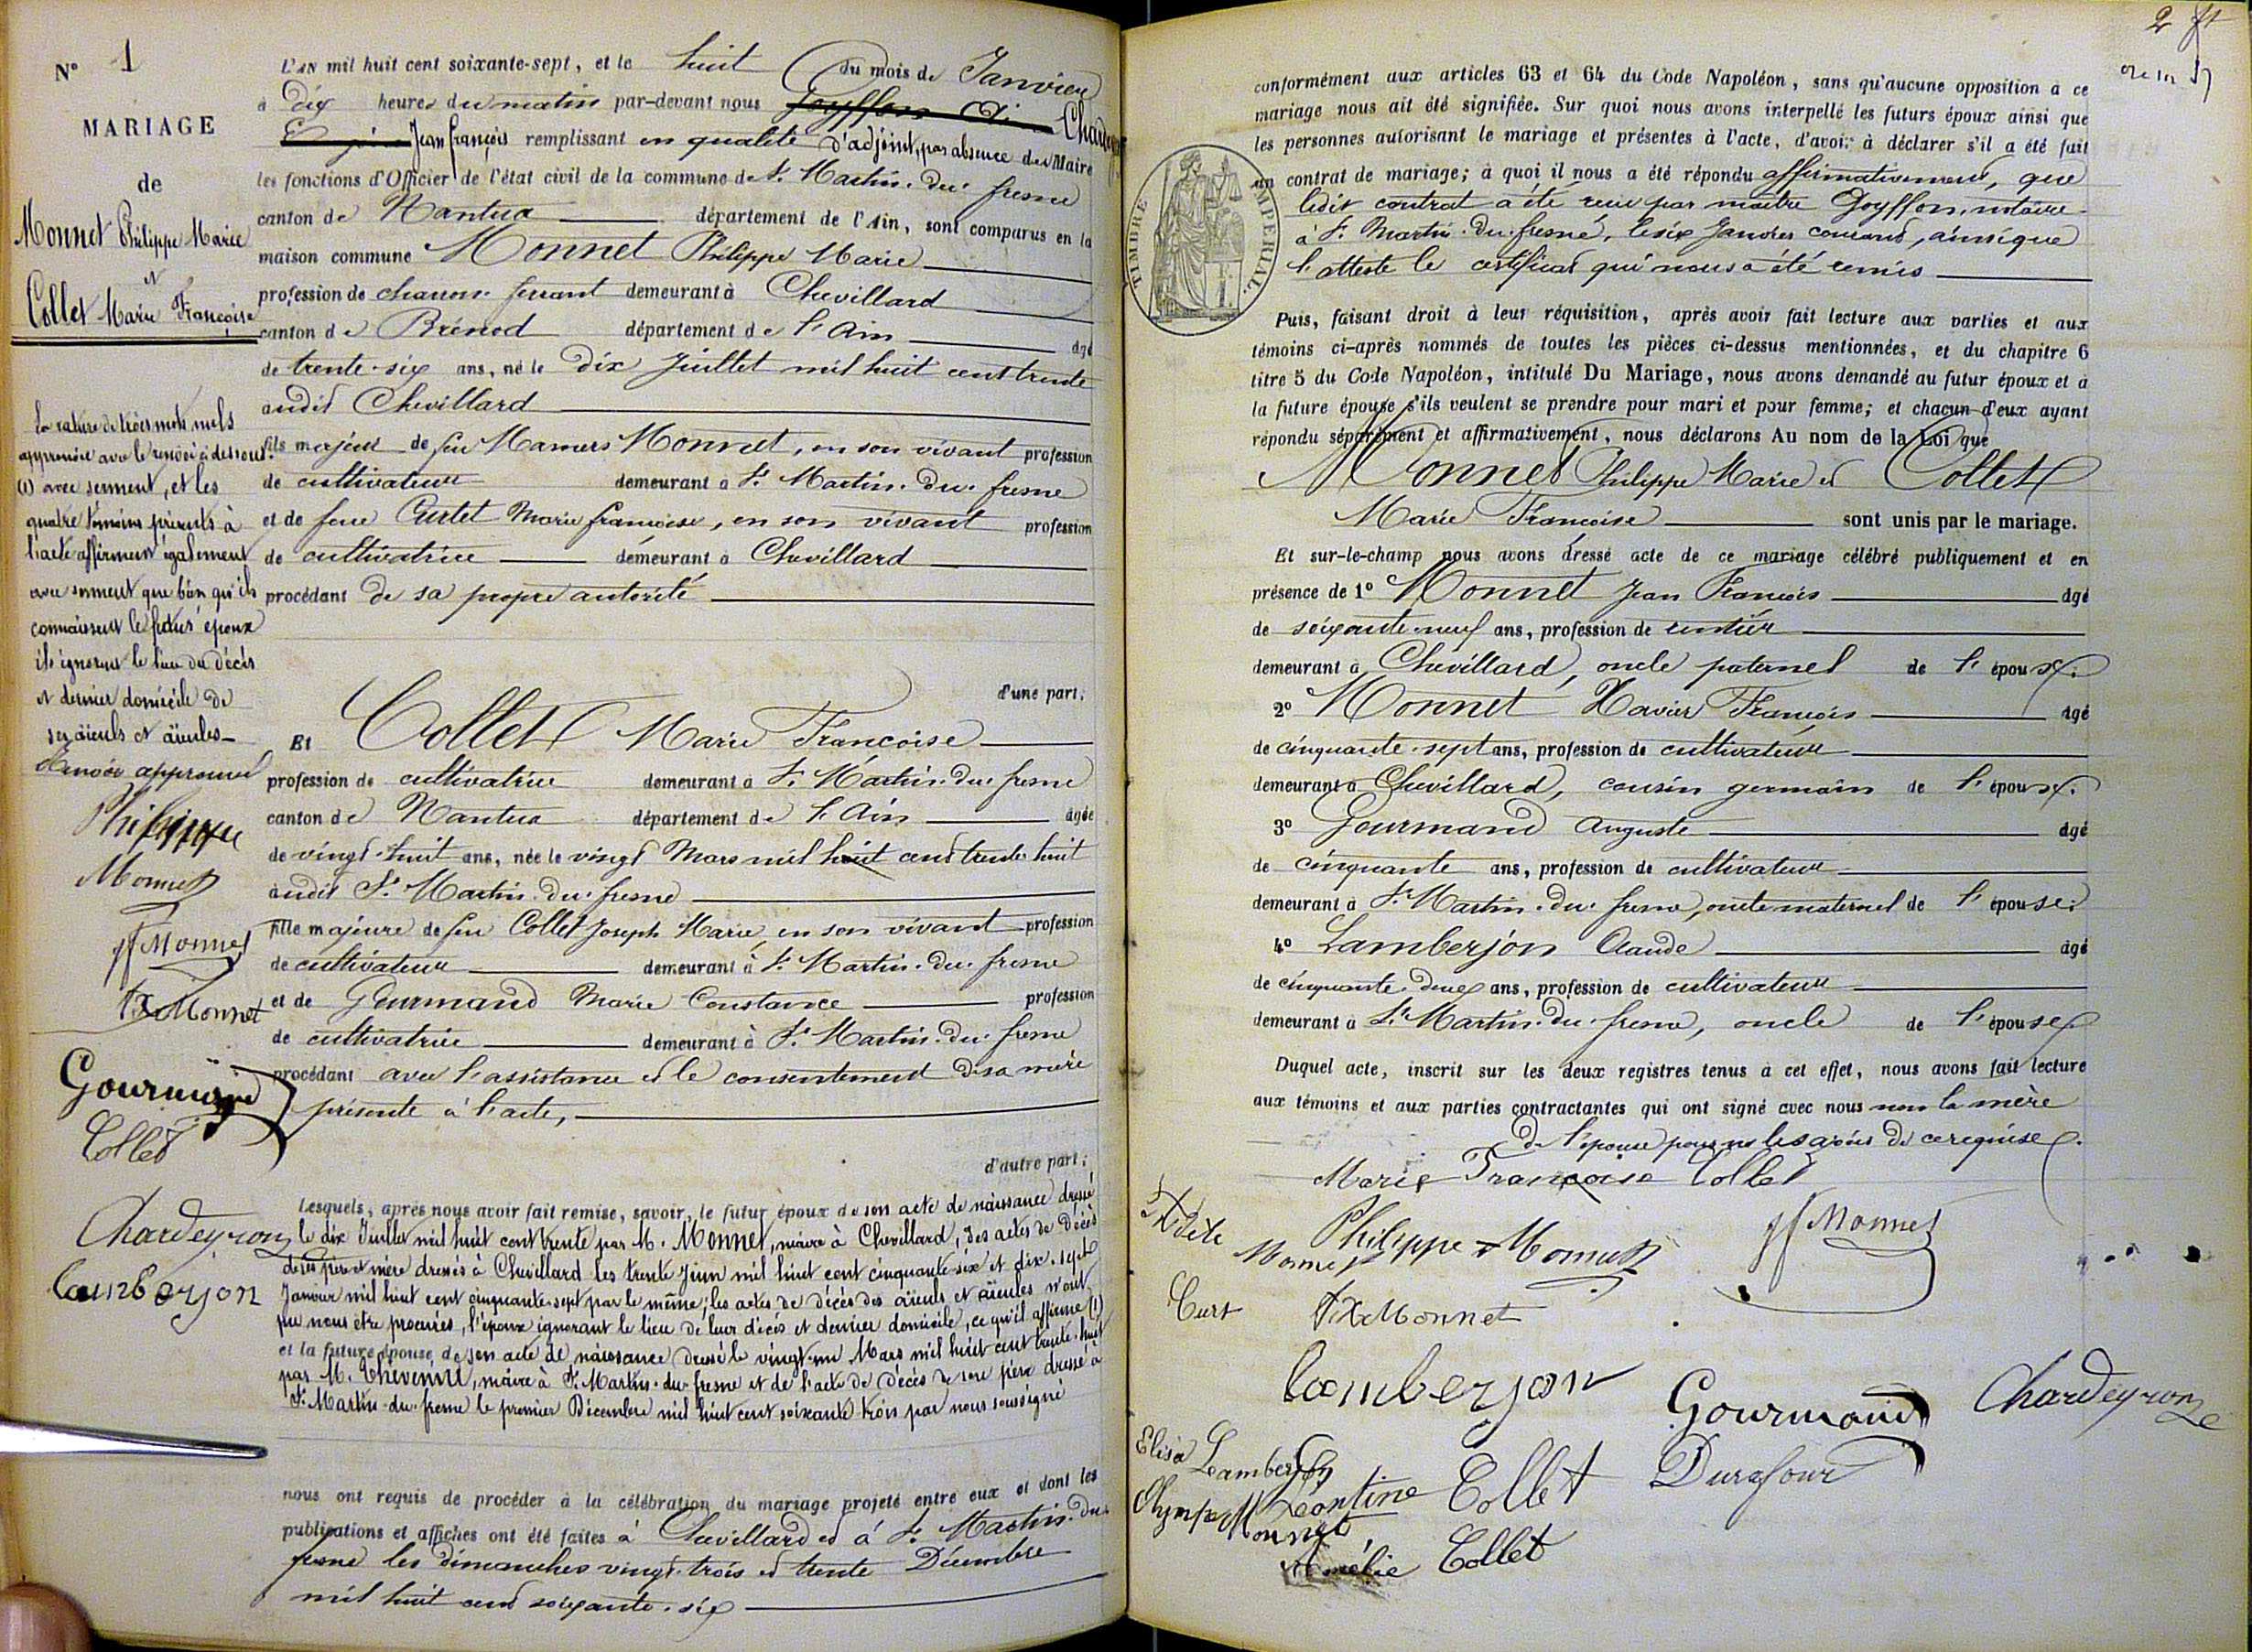 N° 1
MARIAGE
de
Monnet Philippe Marie
et
Collet Marie Françoise
L'AN mil huit cent soixante-sept, et le huit du mois de Janvier
à dix heures du matin par-devant nous Goyffon Chardeyron
Jean françois remplissant en qualité d'adjoint, par absence du Maire
les fonctions d'Officier de l'état civil de la commune de St. Martin-du-fresne
canton de Nantua département de l'Ain, sont comparus en la
maison commune Monnet Philippe Marie
profession de charron ferrant demeurant à Chevillard
canton de Brénod département de l'Ain âgé
de trente-six ans, né le dix Juillet mil huit cent trente
audit Chevillard
fils majeur de feu Mamers Monnet, en son vivant profession
de cultivateur demeurant à St. Martin-du-fresne
et de feue Curtet Marie françoise, en son vivant profession
de cultivatrice demeurant à Chevillard
procédant de sa propre autorité
d'une part;
Et Collet Marie Françoise
profession de cultivatrice demeurant à St. Martin-du-fresne
canton de Nantua département de l'Ain âgée
de vingt-huit ans, née le vingt Mars mil huit cent trente huit
audit St. Martin-du-fresne
fille majeure de feu Collet Joseph Marie, en son vivant profession
de cultivateur demeurant à St. Martin-du-fresne
et de Gourmand Marie Constance profession
de cultivatrice demeurant à St. Martin-du-fresne
procédant avec l'assistance et le consentement de sa mère
présente à l'acte,
d'autre part;
Lesquels, après nous avoir fait remise, savoir, le futur époux de son acte de naissance dressé
le dix Juillet mil huit cent trente par M. Monnet, maire à Chevillard, des actes de décès
de ses père et mère dressés à Chevillard les trente Juin mil huit cent cinquante-six et dix-sept
Janvier mil huit cent cinquante-sept par le même; les actes de décès des aïeuls et aïeules n'ont
pu nous être procurés, l'époux ignorant le lieu de leur décès et dernier domicile, ce qu'il affirme (1)
et la future épouse de son acte de naissance dressé le vingt-un Mars mil huit cent trente-huit
par M. Thévenin, maire à St. Martin-du-fresne et de l'acte de décès de son père dressé à
St. Martin-du-fresne le premier Décembre mil huit cent soixante trois par nous soussigné
nous ont requis de procéder à la célébration du mariage projeté entre eux et dont les
publications et affiches ont été faites à Chevillard et à St. Martin-du-
fresne les dimanches vingt-trois et trente Décembre
mil huit cent soixante-six
La rature de trois mots nuls
approuvée avec le renvoi ci dessous
(1) avec serment, et les
quatre témoins présents à
l'acte affirment également
avec serment que bien qu'ils
connaissent le futur époux
ils ignorent le lieu du décès
et dernier domicile de
ses aïeuls et aïeules
Renvoi approuvé
Philippe
Monnet
jf Monnet
fx Monnet
Gourmand
Collet
Chardeyron
Lamberjon
2
conformément aux articles 63 et 64 du Code Napoléon, sans qu'aucune opposition à ce
mariage nous ait été signifiée. Sur quoi nous avons interpellé les futurs époux ainsi que
les personnes autorisant le mariage et présentes à l'acte, d'avoir à déclarer s'il a été fait
un contrat de mariage; à quoi il nous a été répondu affirmativement, que
ledit contrat a été reçu par maître Goyffon, notaire
à St. Martin-du-fresne, le six Janvier courant, ainsi que
l'atteste le certificat qui nous a été remis
TIMBRE IMPERIAL.
Puis, faisant droit à leur réquisition, après avoir fait lecture aux parties et aux
témoins ci-après nommés de toutes les pièces ci-dessus mentionnées, et du chapitre 6
titre 5 du Code Napoléon, intitulé Du Mariage, nous avons demandé au futur époux et à
la future épouse s'ils veulent se prendre pour mari et pour femme; et chacun d'eux ayant
répondu séparément et affirmativement, nous déclarons Au nom de la Loi que
Monnet Philippe Marie et Collet
Marie Françoise sont unis par le mariage.
Et sur-le-champ nous avons dressé acte de ce mariage célébré publiquement et en
présence de 1° Monnet Jean François âgé
de soixante-neuf ans, profession de rentier
demeurant à Chevillard, oncle paternel de l'époux.
2° Monnet Xavier François âgé
de cinquante-sept ans, profession de cultivateur
demeurant à Chevillard, cousin germain de l'époux.
3° Gourmand Auguste âgé
de cinquante ans, profession de cultivateur
demeurant à St. Martin-du-fresne, oncle maternel de l'épouse.
4° Lamberjon Claude âgé
de cinquante-deux ans, profession de cultivateur
demeurant à St. Martin-du-fresne, oncle de l'épouse
Duquel acte, inscrit sur les deux registres tenus à cet effet, nous avons fait lecture
aux témoins et aux parties contractantes qui ont signé avec nous non la mère
de l'épouse pour ne les avoir de ce requise.
Marie Françoise Collet
Philippe Monnet
jf Monnet
Monnet
Curt
fx Monnet
Lamberjon
Gourmand
Chardeyron
Elisa Lamberjon
Léontine Collet
Durafour
Olympe Monnet
Amélie Collet